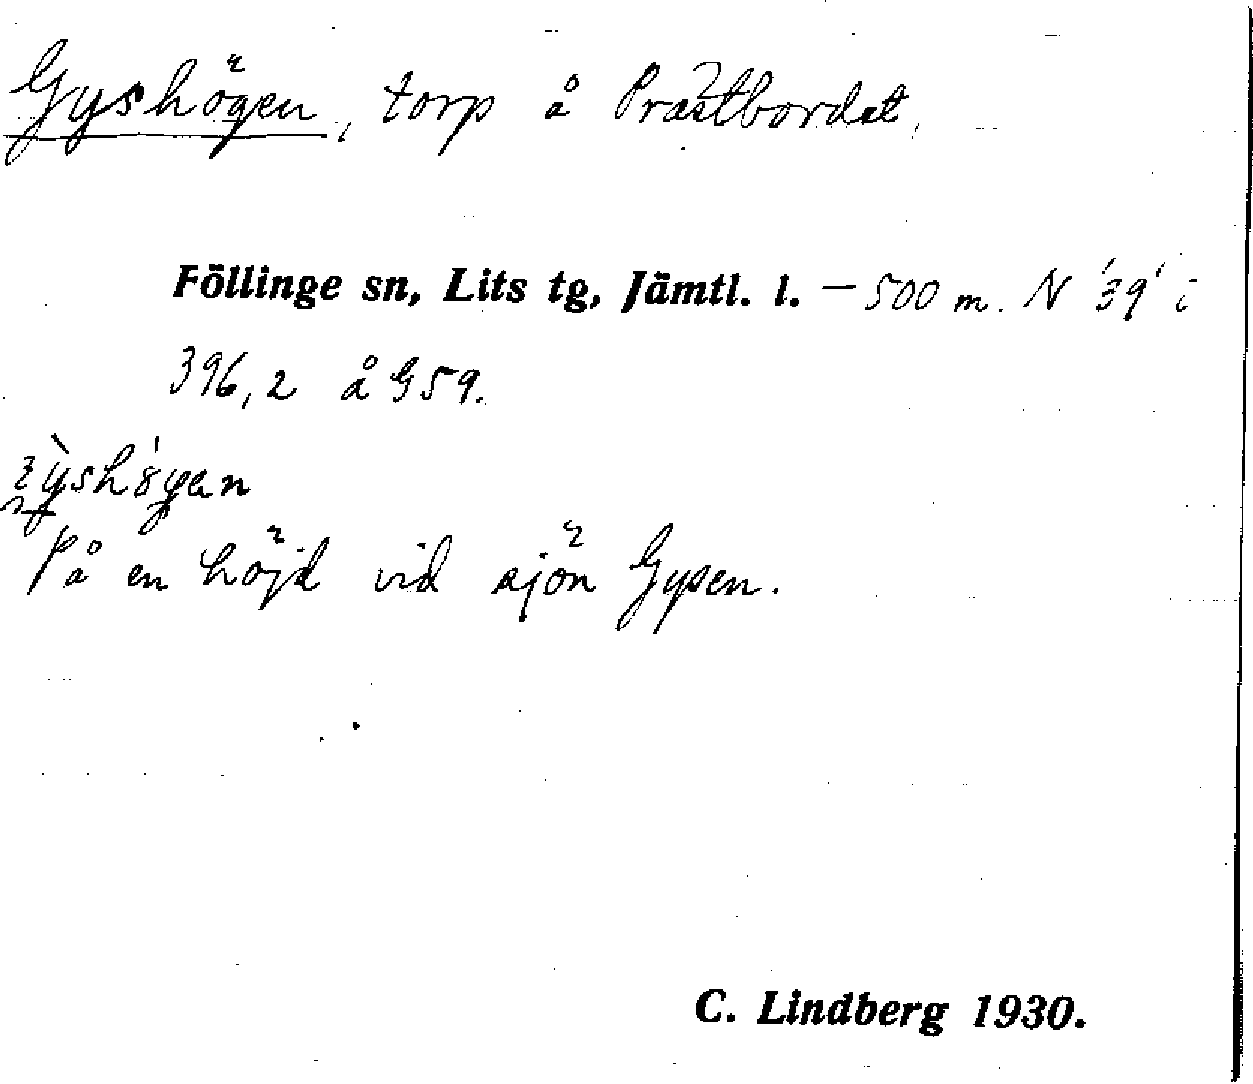 Gyshögen, torp å Prästbordet,
Föllinge sn, Lits tg, Jämtl. l. – 500 m. N '39' i
396,2 å G59.
På en höjd vid sjön Gysen.
C. Lindberg 1930.